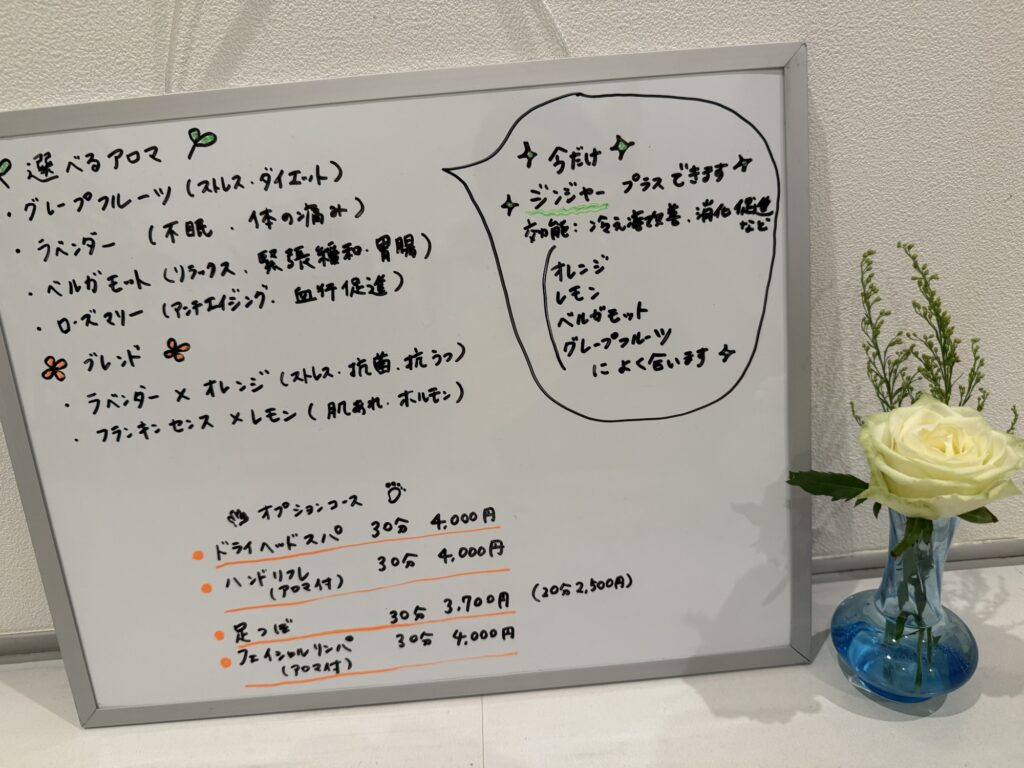 選べるアロマ
・グレープフルーツ (ストレス・ダイエット)
・ラベンダー (不眠、体の痛み)
・ベルガモット (リラックス、緊張緩和・胃腸)
・ローズマリー (アンチエイジング、血行促進)
ブレンド
・ラベンダー × オレンジ (ストレス・抗菌、抗うつ)
・フランキンセンス × レモン (肌あれ・ホルモン)
今だけ
ジンジャー プラスできます
効能: 冷え症改善、消化促進
など
オレンジ
レモン
ベルガモット
グレープフルーツ
によく合います
オプションコース
ドライヘッドスパ 30分 4,000円
ハンドリフレ 30分 4,000円
(アロマ付)
足つぼ 30分 3,700円 (20分2,500円)
フェイシャルリンパ 30分 4,000円
(アロマ付)